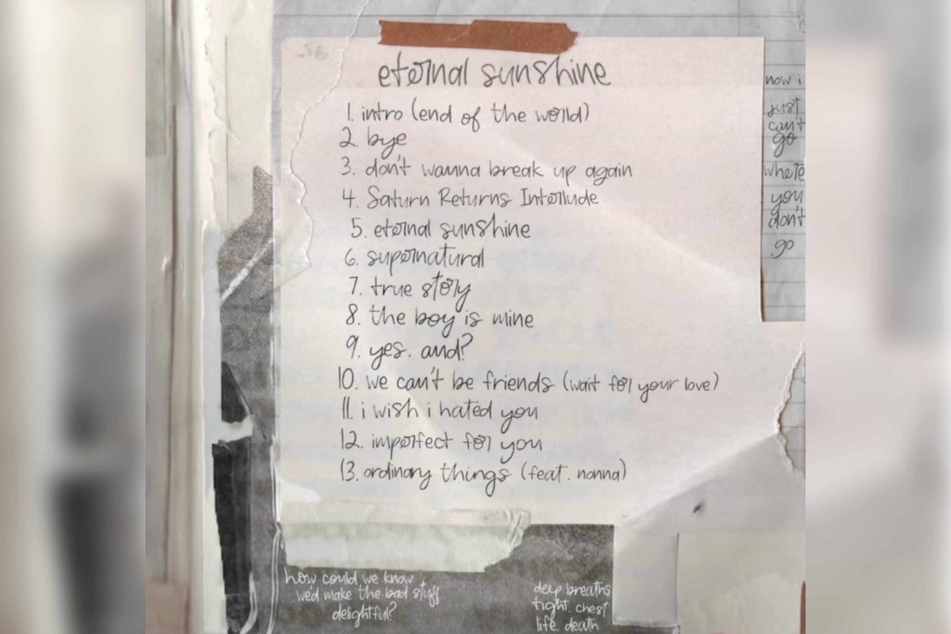 eternal sunshine
1. intro (end of the world)
2. bye
3. don't wanna break up again
4. Saturn Returns Interlude
5. eternal sunshine
6. supernatural
7. true story
8. the boy is mine
9. yes, and?
10. we can't be friends (wait for your love)
11. i wish i hated you
12. imperfect for you
13. ordinary things (feat. nonna)
now i
just
can't
go
where
you
don't
go
how could we know
we'd make the bad stuff
delightful?
deep breaths
tight chest
life, death